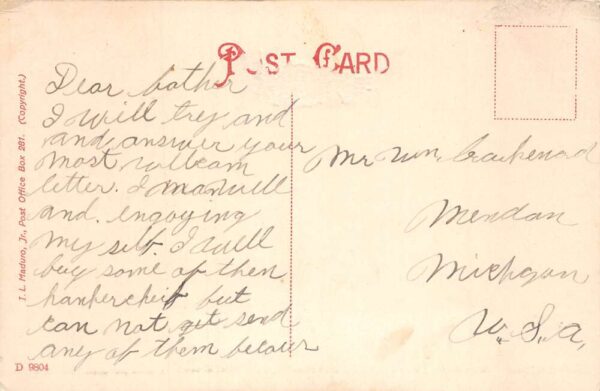 POST CARD
I. L. Maduro, Jr., Post Office Box 281. (Copyright.)
Dear bother
I will try and
and answer your
most wellcom
letter. I Mamwell
and. engoying
my self. I will
buy some of then
hankercheif but
can not get send
any of them becaus
Mr Wm.
Mendan
Michgan
U. S. A.
D 9804